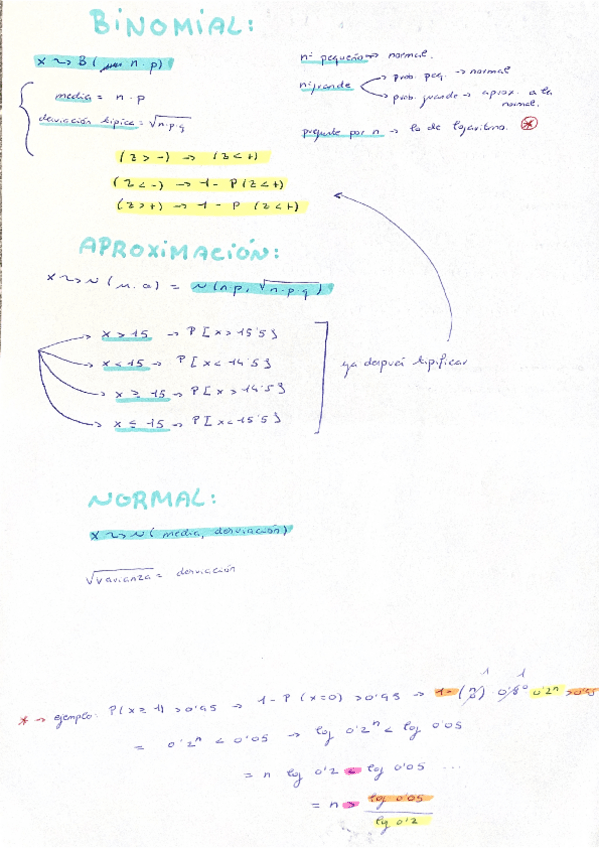 BINOMIAL:
x ~> B( n·p)
media = n·p
desviación típica = √n·p·q
(z > -) → (z < +)
(z < -) → 1 - P(z < +)
(z > +) → 1 - P (z < +)
n: pequeño → normal.
n: grande → prob. peq. → normal
→ prob. grande → aprox. a la normal.
pregunte por n → lo de logaritmo. *
APROXIMACIÓN:
x ~> N(μ.σ) = N(n·p, √n·p·q)
x > 15 → P[x > 15'5]
x < 15 → P[x < 14'5]
x ≥ 15 → P[x > 14'5]
x ≤ 15 → P[x < 15'5]
ya después tipificar
NORMAL:
x ~> N( media, desviación)
√varianza = desviación
* → ejemplo: P(x ≥ 1) > 0'95 → 1 - P(x=0) > 0'95 → 1 - (n 0) · 0'8⁰ 0'2ⁿ > 0'95
1 1
= 0'2ⁿ < 0'05 → log 0'2ⁿ < log 0'05
= n log 0'2 < log 0'05 ...
= n > log 0'05 / log 0'2